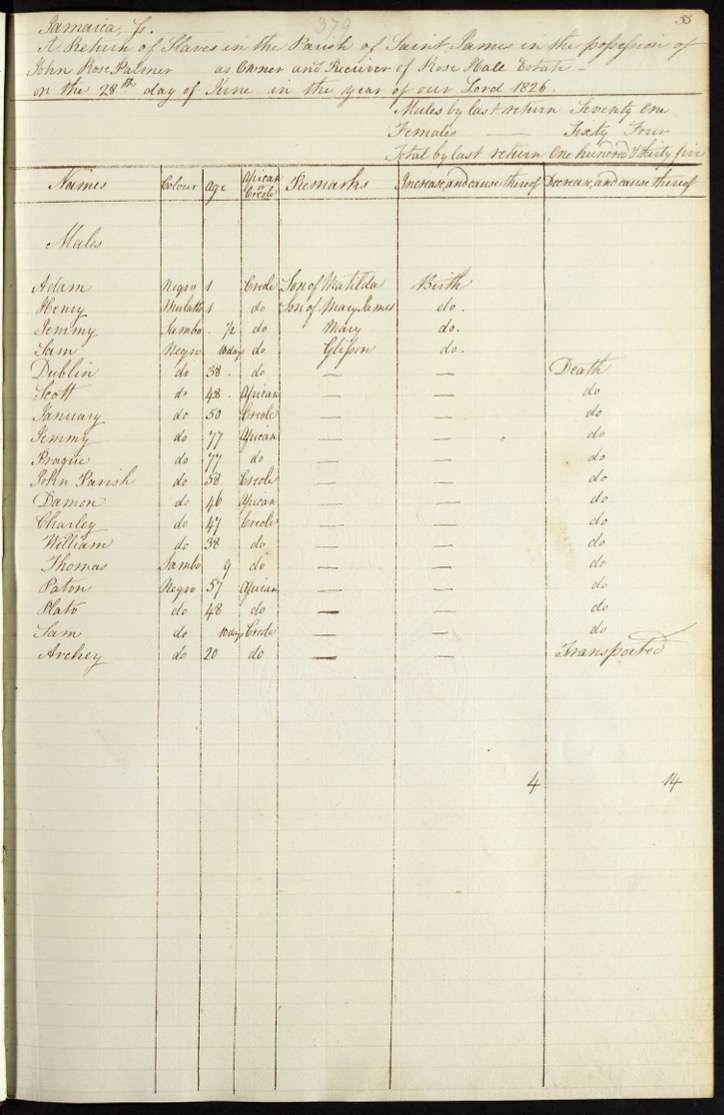 379
55
Jamaica, ss.
A Return of Slaves in the Parish of Saint James in the possession of
John Rose Palmer as Owner and Receiver of Rose Hall Estate
on the 28th day of June in the year of our Lord 1826.
Males by last return Seventy One
Females — Sixty Four
Total by last return One hundred & thirty five
Names Colour Age African or Creole Remarks Increase, and cause thereof Decrease, and cause thereof
Males
Adam Negro 1 Creole Son of Matilda Birth
Henry Mulatto 1 do Son of Mary James do.
Jemmy Sambo ½ do Mary do.
Sam Negro 10 days do do.
Dublin do 38 do — — Death
Scott do 48 African — — do
January do 50 Creole — — do
Jemmy do 77 African — — do
Prague do 77 do — — do
John Parish do 58 Creole — — do
Damon do 46 African — — do
Charley do 47 Creole — — do
William do 38 do — — do
Thomas Sambo 9 do — — do
Paton Negro 57 African — — do
Plato do 48 do — — do
Sam do 10 days Creole — — do
Archey do 20 do — — Transported
4 14